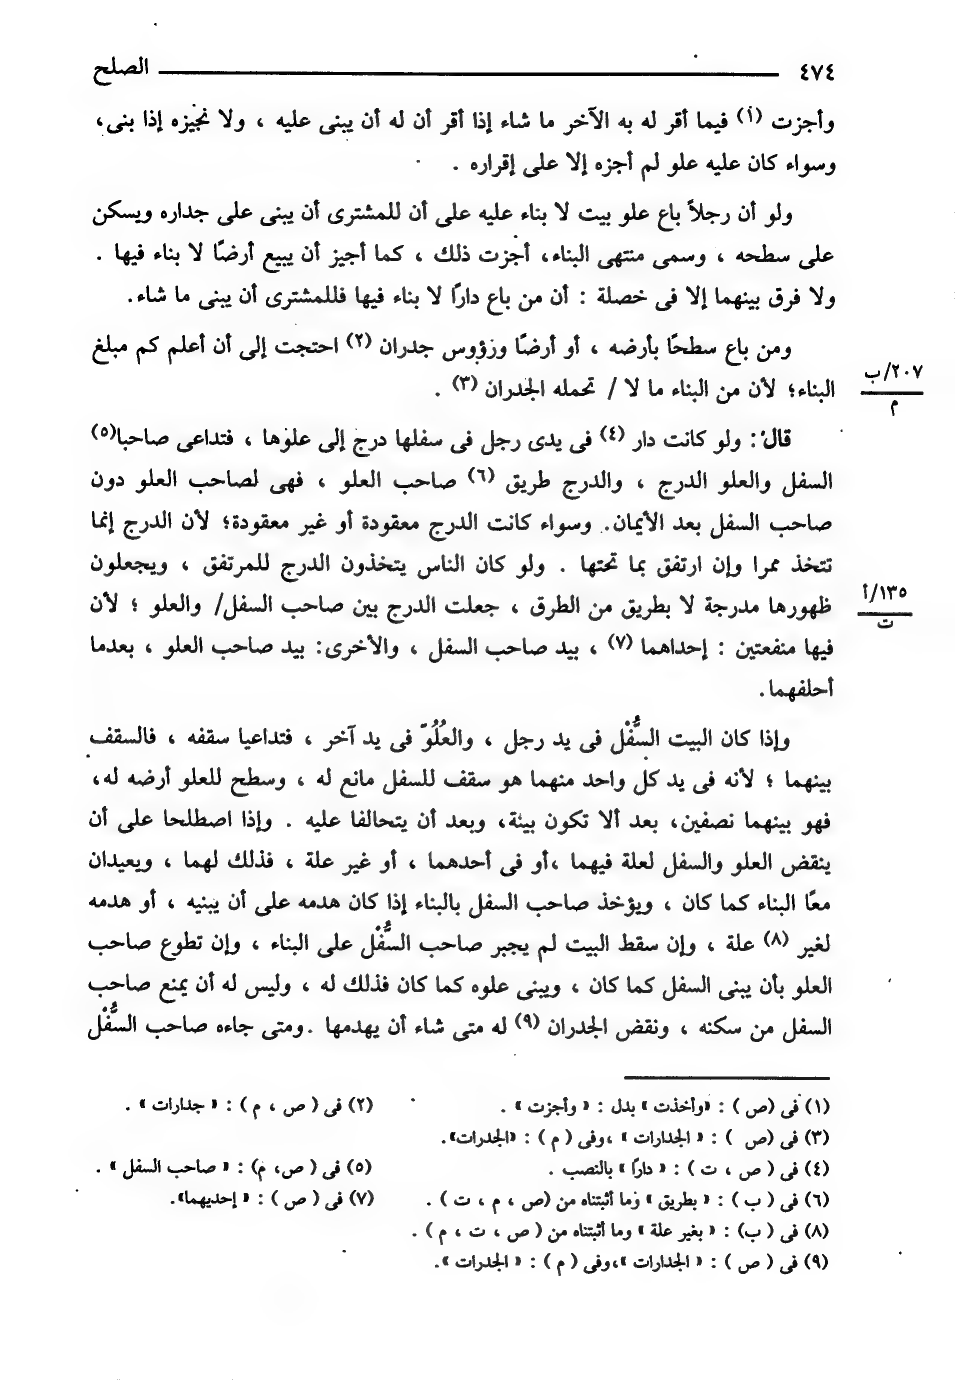 ٤٧٤ الصلح
وأجزت (أ) فيما أقر له به الآخر ما شاء إذا أقر أن له أن يبنى عليه ، ولا نجيزه إذا بنى،
وسواء كان عليه علو لم أجزه إلا على إقراره .
ولو أن رجلاً باع علو بيت لا بناء عليه على أن للمشترى أن يبنى على جداره ويسكن
على سطحه ، وسمى منتهى البناء، أجزت ذلك ، كما أجيز أن يبيع أرضًا لا بناء فيها .
ولا فرق بينهما إلا فى خصلة : أن من باع دارًا لا بناء فيها فللمشترى أن يبنى ما شاء.
ومن باع سطحًا بأرضه ، أو أرضًا وزؤوس جدران (٢) احتجت إلى أن أعلم كم مبلغ
٢٠٧/ب
م
البناء؛ لأن من البناء ما لا / تحمله الجدران (٣) .
قال : ولو كانت دار (٤) فى يدى رجل فى سفلها درج إلى علوها ، فتداعى صاحبا(٥)
السفل والعلو الدرج ، والدرج طريق (٦) صاحب العلو ، فهى لصاحب العلو دون
صاحب السفل بعد الأيمان. وسواء كانت الدرج معقودة أو غير معقودة؛ لأن الدرج إنما
تتخذ ممرا وإن ارتفق بما تحتها . ولو كان الناس يتخذون الدرج للمرتفق ، ويجعلون
١٣٥/أ
ت
ظهورها مدرجة لا بطريق من الطرق ، جعلت الدرج بين صاحب السفل/ والعلو ؛ لأن
فيها منفعتين : إحداهما (٧) ، بيد صاحب السفل ، والأخرى: بيد صاحب العلو ، بعدما
أحلفهما.
وإذا كان البيت السُّفْل فى يد رجل ، والعُلُوّ فى يد آخر ، فتداعيا سقفه ، فالسقف
بينهما ؛ لأنه فى يد كل واحد منهما هو سقف للسفل مانع له ، وسطح للعلو أرضه له،
فهو بينهما نصفين، بعد ألا تكون بينة، وبعد أن يتحالفا عليه . وإذا اصطلحا على أن
ينقض العلو والسفل لعلة فيهما ،أو فى أحدهما ، أو غير علة ، فذلك لهما ، ويعيدان
معًا البناء كما كان ، ويؤخذ صاحب السفل بالبناء إذا كان هدمه على أن يبنيه ، أو هدمه
لغير (٨) علة ، وإن سقط البيت لم يجبر صاحب السُّفْل على البناء ، وإن تطوع صاحب
العلو بأن يبنى السفل كما كان ، ويبنى علوه كما كان فذلك له ، وليس له أن يمنع صاحب
السفل من سكنه ، ونقض الجدران (٩) له متى شاء أن يهدمها .ومتى جاءه صاحب السُّفْل
(١) فى (ص ) : «وأخذت » بدل : « وأجزت » . (٢) فى ( ص ، م ) : « جدارات » .
(٣) فى (ص ) : « الجدارات » ،وفى ( م ) : «الجدرات».
(٤) فى ( ص ، ت ) : « دارًا » بالنصب . (٥) فى ( ص، م) : « صاحب السفل » .
(٦) فى ( ب ) : « بطريق » وما أثبتناه من (ص ، م ، ت ) . (٧) فى ( ص ) : « إحديهما».
(٨) فى ( ب) : « بغير علة » وما أثبتناه من ( ص ، ت ، م ) .
(٩) فى ( ص ) : « الجدارات »،وفى ( م ) : « الجدرات ».